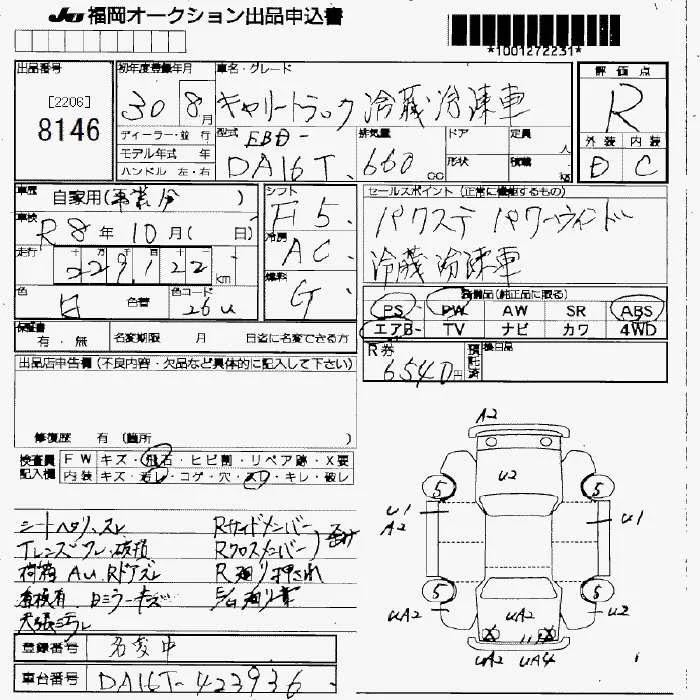 JU 福岡オークション出品申込書
*1001272231*
出品番号
[2206]
8146
初年度登録年月
30 8月
車名・グレード
キャリートラック 冷蔵冷凍車
評価点
R
外装 内装
D C
ディーラー・並行
モデル年式 年
ハンドル 左・右
型式
EBD-
DA16T
排気量
660 cc
ドア
形状
定員
人
積載
kg
車歴
自家用(事業分)
車検
R8年10月(日)
走行
十万千百十
229,122km
色
白
色替
色コード
26U
シフト
F5
冷房
AC
燃料
G
セールスポイント(正常に機能するもの)
パワステ パワーウィンドー
冷蔵冷凍車
装備品(純正品に限る)
PS PW AW SR ABS
エアB TV ナビ カワ 4WD
保証書
有・無
名変期限 月 日迄に名変できる方
R券
6540円
預託済
後日品
出品店申告欄(不良内容・欠品など具体的に記入して下さい)
修復歴 有 (箇所 )
検査員
記入欄
FW キズ・飛石・ヒビ割・リペア跡・X要
内装 キズ・汚レ・コゲ・穴・スレ・キレ・破レ
シートヘタリ、スレ
Tレンズワレ・破損
荷箱 Au、Rドアズレ
Rサイドメンバー
Rクロスメンバー
R廻り押され
A2
U2
5
5
U1
A2
U1
5
5
UA2
U2
UA2
X
X
UA2
UA4
登録番号
名変中
車台番号
DA16T-423936